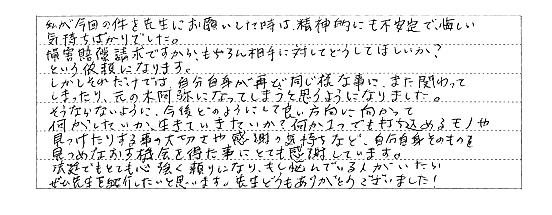 私が今回の件を先生にお願いした時は、精神的にも不安定で、悔しい
気持ちばかりでした。
損害賠償請求ですから、もちろん相手に対してどうしてほしいか？
という依頼になります。
しかしそれだけでは、自分自身が再び同じ様な事に、また関わって
しまったり、元の木阿弥になってしまうと思うようになりました。
そうならないように、今後どのようにして良い方向に向かって
何がしたいか、生きていきたいか？何か1つでも打ち込めるモノや
見つけたりする事の大切さや感謝の気持ちなど、自分自身そのものを
見つめなおす機会を得た事にとても感謝しています。
法題でもとても心強く頼りになり、もし悩んでいる人がいたら
ぜひ先生を紹介したいと思います。先生どうもありがとうございました！